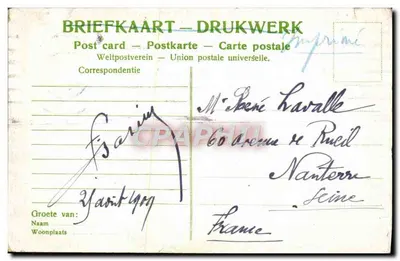 BRIEFKAART – DRUKWERK
Post card – Postkarte – Carte postale
Imprimé
Weltpostverein – Union postale universelle.
Correspondentie
Mr René Lavalle
60 avenue de Rueil
Nanterre
Seine
France
25 août 1909
Groete van:
Naam
Woonplaats